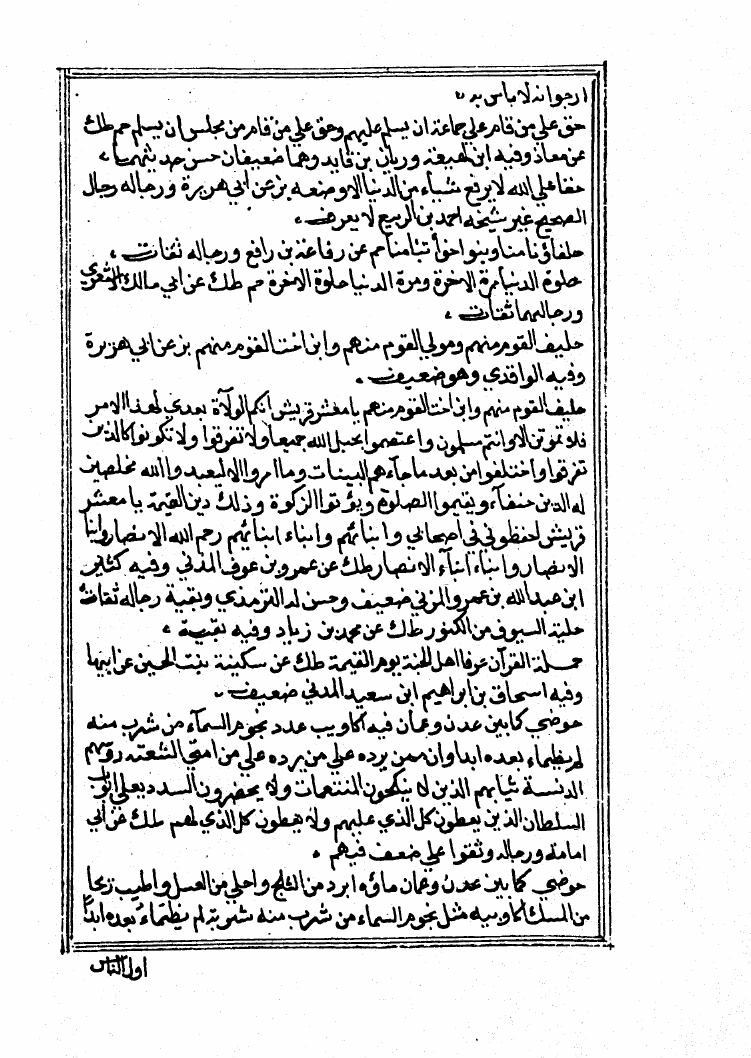 ارجو انه لا باس به
حق علي من قام علي جماعة ان يسلم عليهم وحق علي من قام من مجلس ان يسلم حم طك
عن معاذ وفيه ابن لهيعة وريان بن فايد وهما ضعيفان حسن حديثهما
حقا علي الله لا يرفع شياء من الدنيا الا وضعه بز عن ابي هريرة ورجاله رجال
الصحيح غير شيخه احمد بن الربيع لا يعرف
حلفاؤنا منا وبنوا اخوأتنا منا حم عن رفاعة بن رافع ورجاله ثقات
حلوة الدنيا مرة الاخرة ومرة الدنيا حلوة الاخرة حم طك عن ابي مالك الاشعري
ورجالهما ثقات
حليف القوم منهم ومولي القوم منهم وابن اخت القوم منهم بز عن ابي هريرة
وفيه الواقدي وهو ضعيف
حليف القوم منهم وابن اخت القوم منهم يا معشر قريش انكم الولاة بعدي لهذا الامر
فلا تموتن الا وانتم مسلمون واعتصموا بحبل الله جميعا ولا تفرقوا ولا تكونوا كالذين
تفرقوا واختلفوا من بعد ما جآءهم البينات وما امروا الا ليعبدوا الله مخلصين
له الدين حنفآء ويقيموا الصلوة ويؤتوا الزكوة وذلك دين القيمة يا معشر
قريش احفظوني في اصحابي وابنائهم وابناء ابنائهم رحم الله الانصار وابنا
الانصار وابناء ابنآء الانصار طك عن عمرو بن عوف المدني وفيه كثير
ابن عبد الله بن عمرو المزني ضعيف وحسن له الترمذي وبقية رجاله ثقات
حلية السيوف من الكنوز طك عن محمد بن زياد وفيه بقية
حملة القرآن عرفا اهل الجنة يوم القيمة طك عن سكينة بنت الحسين عن ابيها
وفيه اسحاق بن ابراهيم ابن سعيد المدني ضعيف
حوضي كما بين عدن وعمان فيه اكاويب عدد نجوم السمآء من شرب منه
لم يظماء بعده ابدا وان ممن يرده علي من يرده علي من امتي الشعثه رؤسهم
الدنسة ثيابهم الذين لا ينكحون المنتعمات ولا يحضرون السدد يعني ابواب
السلطان الذين يعطون كل الذي عليهم ولا يعطون كل الذي لهم طك عن ابي
امامة ورجاله وثقوا علي ضعف فيهم
حوضي كما بين عدن وعمان ماؤه ابرد من الثلج واحلي من العسل واطيب ريحا
من المسك اكاويبه مثل نجوم السماء من شرب منه شربة لم يظماء بعده ابدا
اول الناس